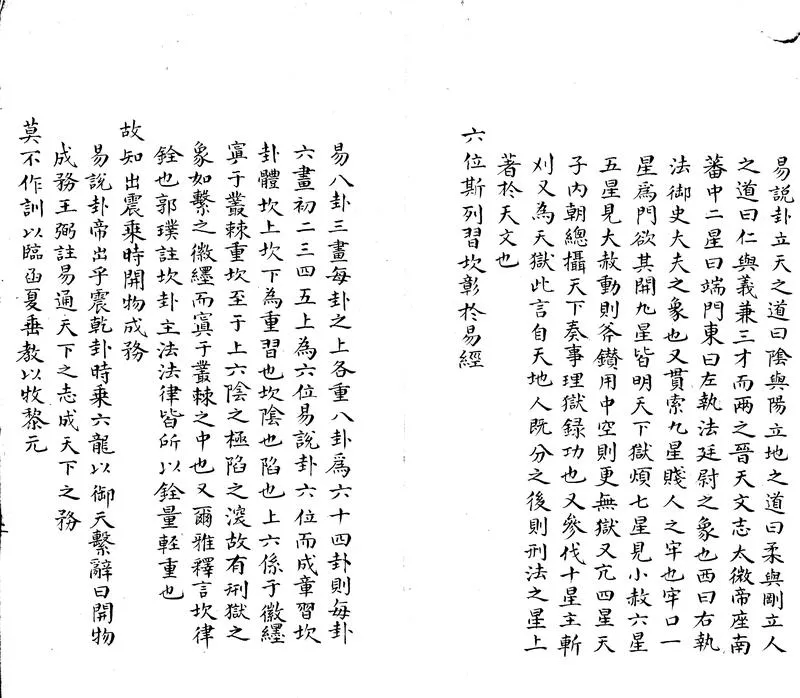 易說卦立天之道曰陰與陽立地之道曰柔與剛立人
之道曰仁與義兼三才而兩之晉天文志太微帝座南
蕃中二星曰端門東曰左執法廷尉之象也西曰右執
法御史大夫之象也又貫索九星賤人之牢也牢口一
星爲門欲其開九星皆明天下獄煩七星見小赦六星
五星見大赦動則斧鑕用中空則更無獄又亢四星天
子內朝總攝天下奏事理獄錄功也又參伐十星主斬
刈又為天獄此言自天地人既分之後則刑法之星上
著於天文也
六位斯列習坎彰於易經
易八卦三畫每卦之上各重八卦爲六十四卦則每卦
六畫初二三四五上為六位易說卦六位而成章習坎
卦體坎上坎下為重習也坎陰也陷也上六係于徽纆
寘于叢棘重坎至于上六陰之極陷之深故有刑獄之
象如繫之徽纆而寘于叢棘之中也又爾雅釋言坎律
銓也郭璞註坎卦主法法律皆所以銓量輕重也
故知出震乘時開物成務
易說卦帝出乎震乾卦時乘六龍以御天繫辭曰開物
成務王弼註易通天下之志成天下之務
莫不作訓以臨函夏垂教以牧黎元